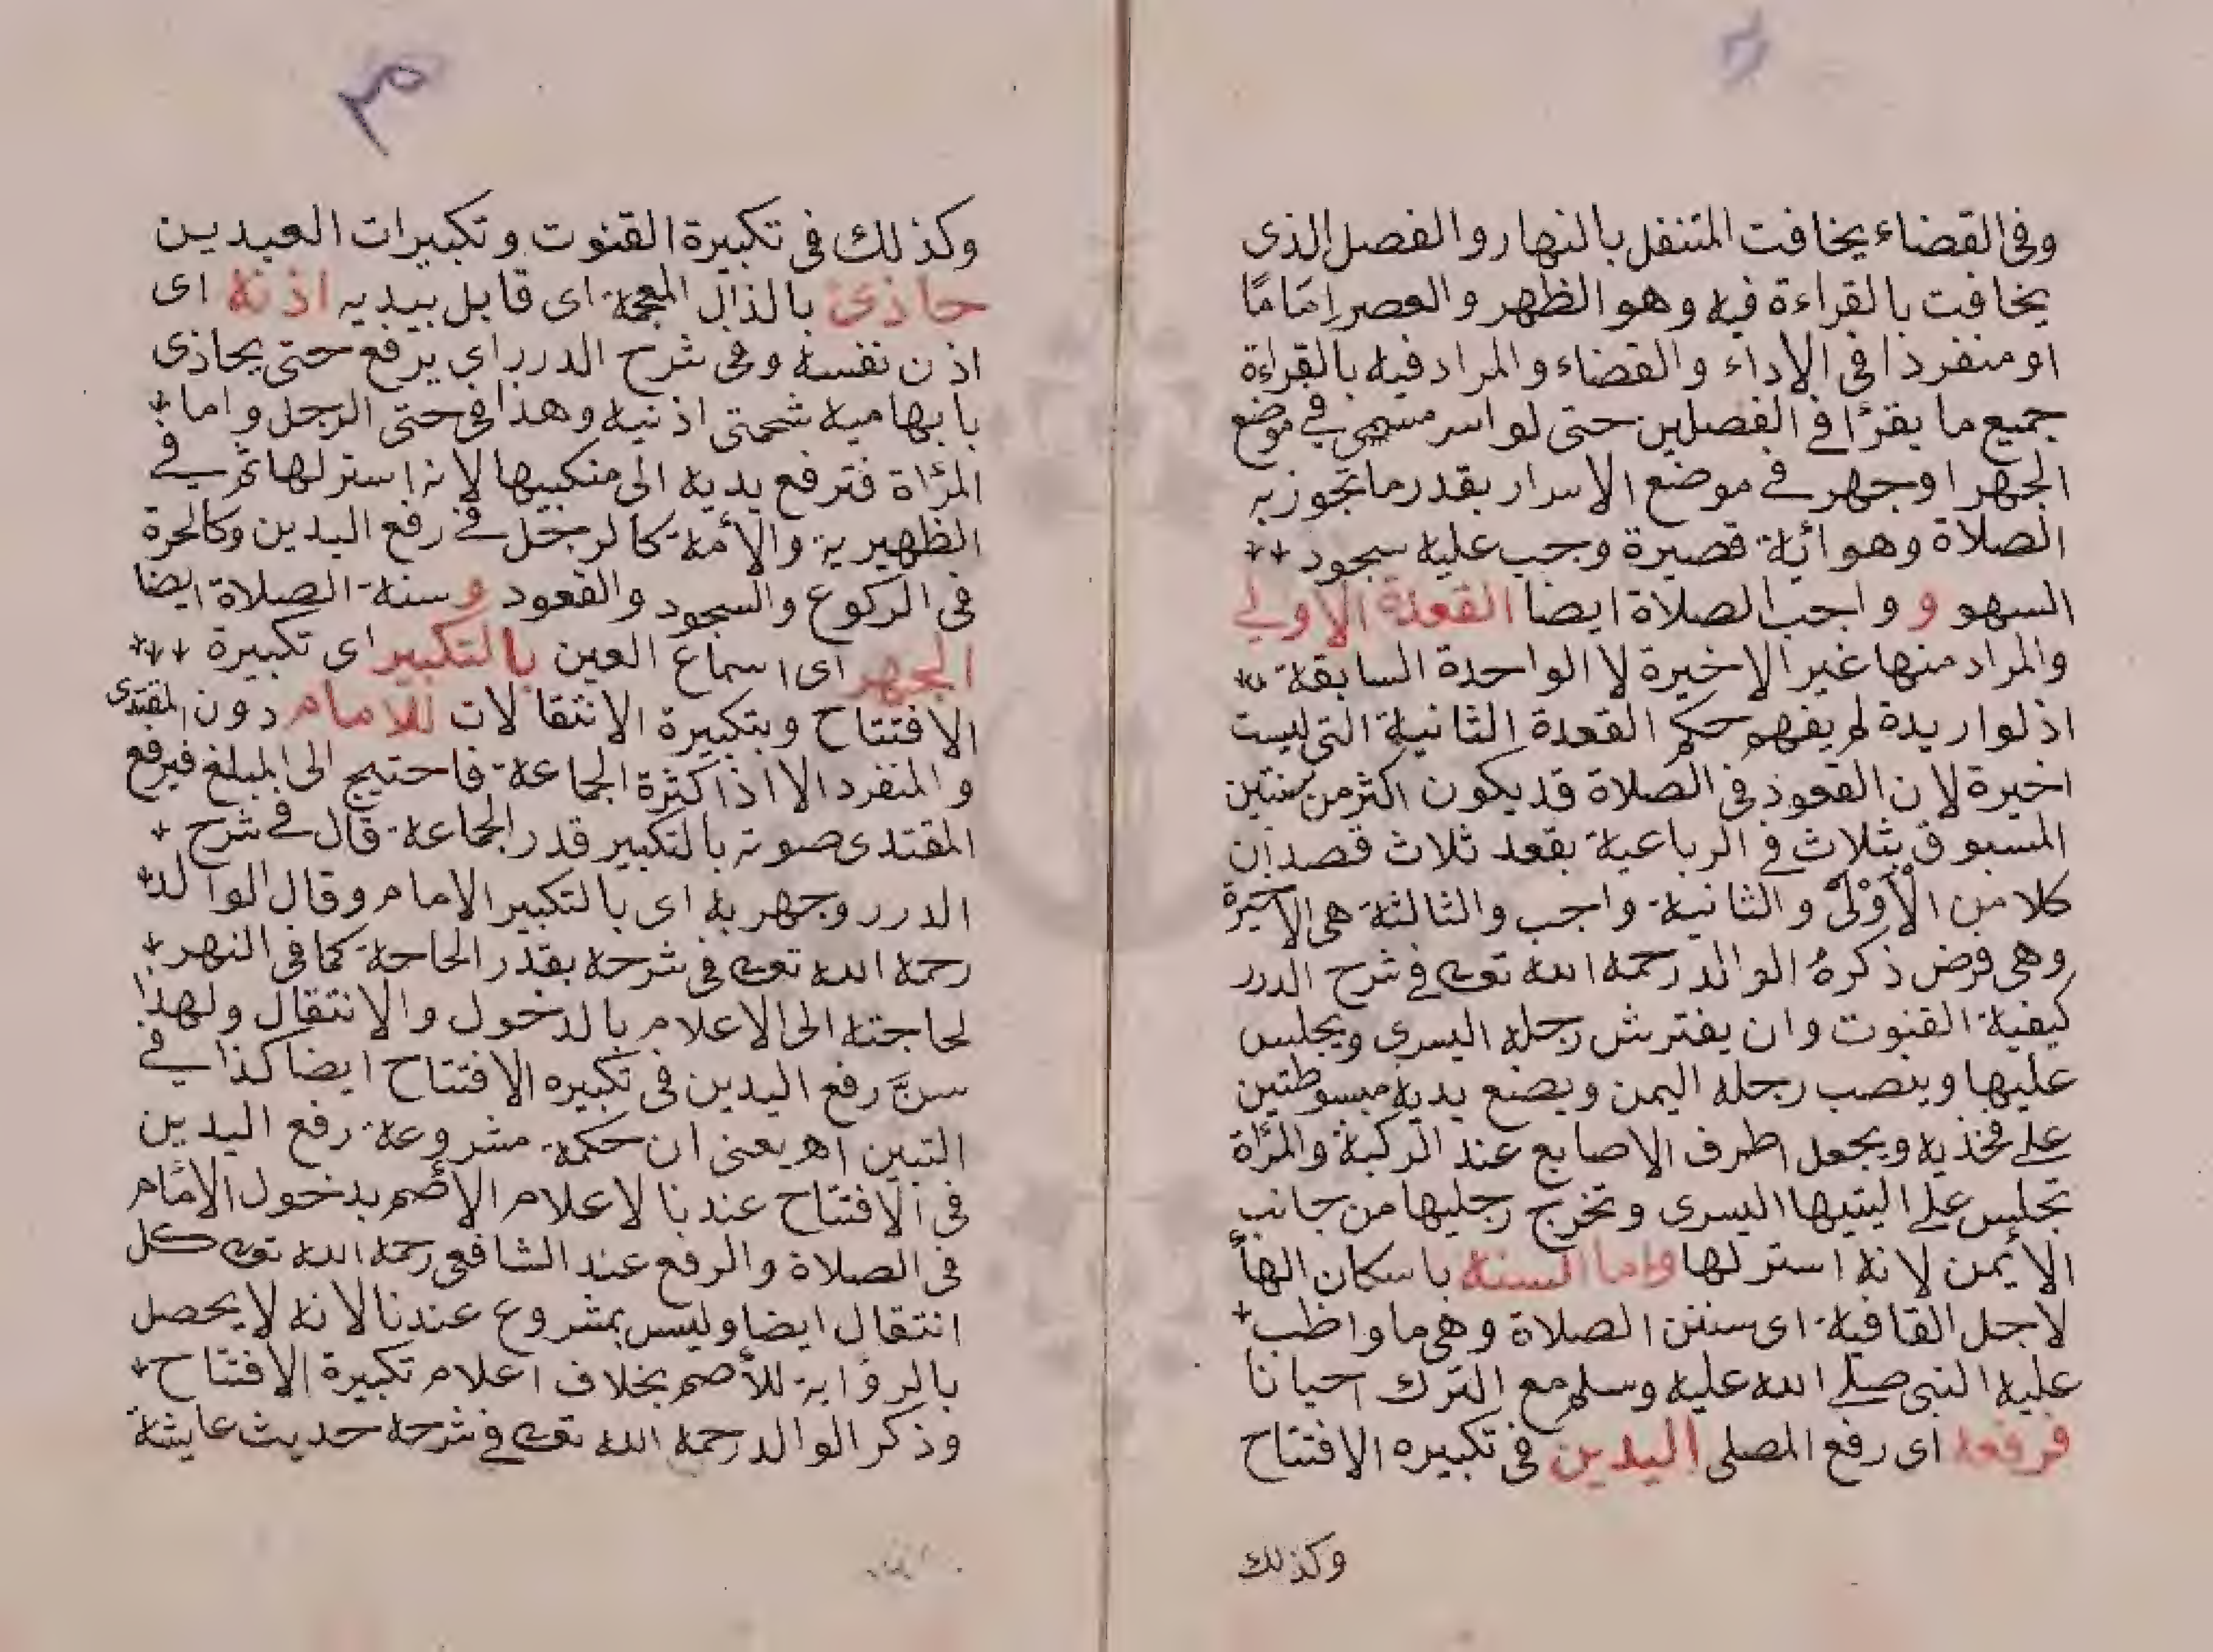 وفى القضاء يخافت المتنفل بالنهار والفصل الذى
يخافت بالقراءة فيه وهو الظهر والعصر إمَامًا
او منفرذا فى الاداء والقضاء والمراد فيه بالقراءة
جميع ما يقرأ فى الفصلين حتى لو اسر مسهى فى موضع
الجهر اوجهر فى موضع الاسرار بقدر ما تجوز به
الصلاة وهو اية قصيرة وجب عليه سجود
السهو و واجب الصلاة ايضا القعدة الاولى
والمراد منها غير الاخيرة لا الواحدة السابقة
اذ لو اريدة لم يفهم حكم القعدة الثانية التى ليست
اخيرة لان القعود فى الصلاة قد يكون اكثر من سنتين
المسبوق بثلاث فى الرباعية يقعد ثلاث قصد ان
كلا من الأوْلىْ والثانية واجب والثالثة هى الاخيرة
وهى فرض ذكرهُ الوالد رحمه الله تعالى فى شرح الدرر
كيفية القنوت وان يفترش رجله اليسرى ويجلس
عليها وينصب رجله اليمن ويضع يديه مبسوطتين
على فخذيه ويجعل اطرف الاصابع عند الركبة والمرأة
تجلس على اليتيها اليسرى وتخرج رجليها من جانب
الأيمن لانه استر لها واما السنه باسكان الهأ
لاجل القافية اى سنن الصلاة وهى ما واظب
عليه النبى صلى الله عليه وسلم مع الترك احيانا
فرفعه اى رفع المصلى اليدين فى تكبيره الافتتاح
وكذلك
٣
وكذلك فى تكبيرة القنوت وتكبيرات العيدين
حاذى بالذال المعجمة اى قابل بيديه اذنه اى
اذن نفسه وفى شرح الدرر اى يرفع حتى يحاذى
بابهاميه شحمتى اذنيه وهذا فى حتى الرجل واما
المرأة فترفع يديه الى منكبيها لانه استر لها ثم فى
الظهيرية والأمة كالرجل فى رفع اليدين وكالحرة
فى الركوع والسجود والقعود و سنة الصلاة ايضا
الجهر اى اسماع العين بالتكبير اى تكبيرة
الافتتاح وبتكبيرة الانتقالات للامام دون المقتدى
والمنفرد الا اذا كثرة الجماعة فاحتيج الى المبلغ فيرفع
المقتدى صوته بالتكبير قدر الجماعة قال فى شرح
الدرر وجهر به اى بالتكبير الامام وقال الوالد
رحمه الله تعالى فى شرحه بقدر الحاجة كما فى النهر
لحاجته الى الاعلام بالدخول والانتقال ولهذا
سنَّ رفع اليدين فى تكبيره الافتتاح ايضا كذا فى
التبين اه يعنى ان حكمة مشروعة رفع اليدين
فى الافتتاح عندنا لاعلام الأصم بدخول الامام
فى الصلاة والرفع عند الشافعى رحمه الله تعالى كل
انتقال ايضا وليس بمشروع عندنا لانه لا يحصل
بالرؤاية للأصم بخلاف اعلام تكبيرة الافتتاح
وذكر الوالد رحمه الله تعالى فى شرحه حديث عايشة